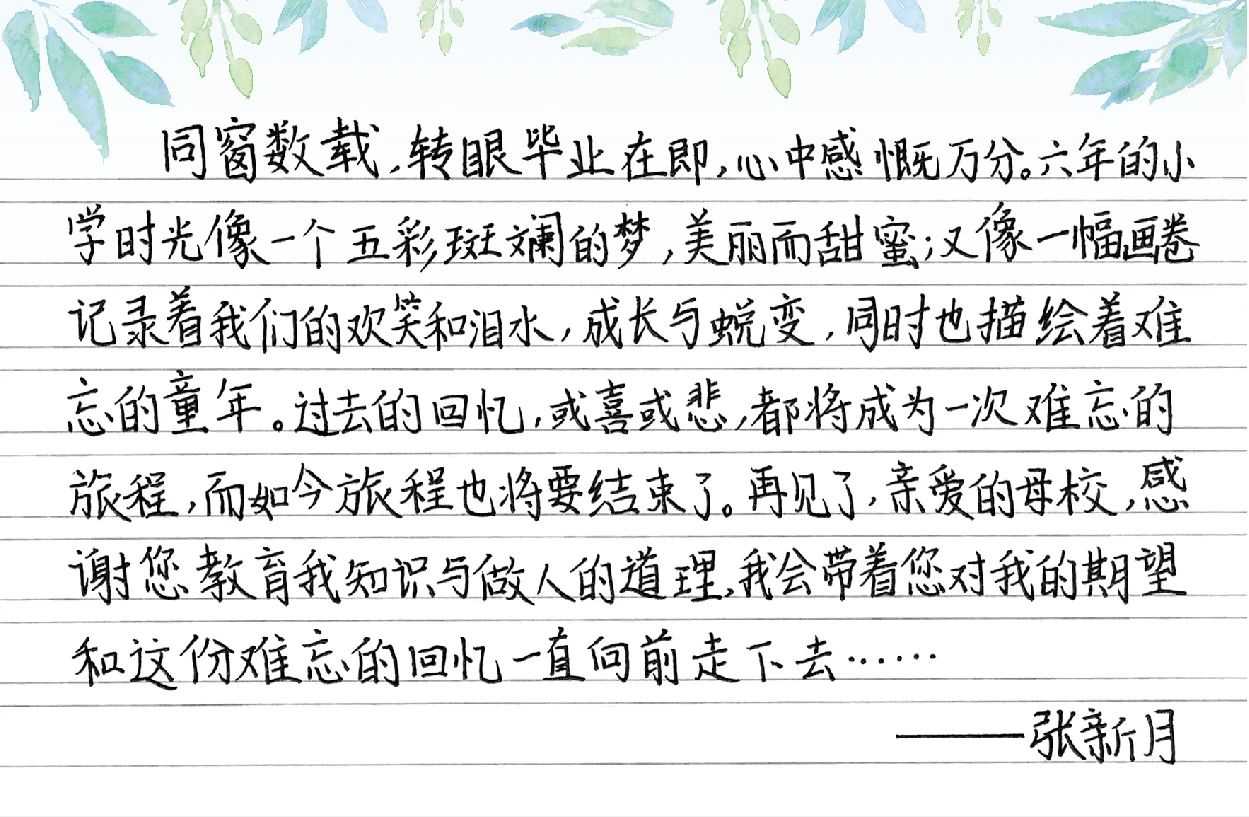 同窗数载,转眼毕业在即,心中感慨万分。六年的小
学时光像一个五彩斑斓的梦,美丽而甜蜜;又像一幅画卷
记录着我们的欢笑和泪水,成长与蜕变,同时也描绘着难
忘的童年。过去的回忆,或喜或悲,都将成为一次难忘的
旅程,而如今旅程也将要结束了。再见了,亲爱的母校,感
谢您教育我知识与做人的道理,我会带着您对我的期望
和这份难忘的回忆一直向前走下去……
——张新月